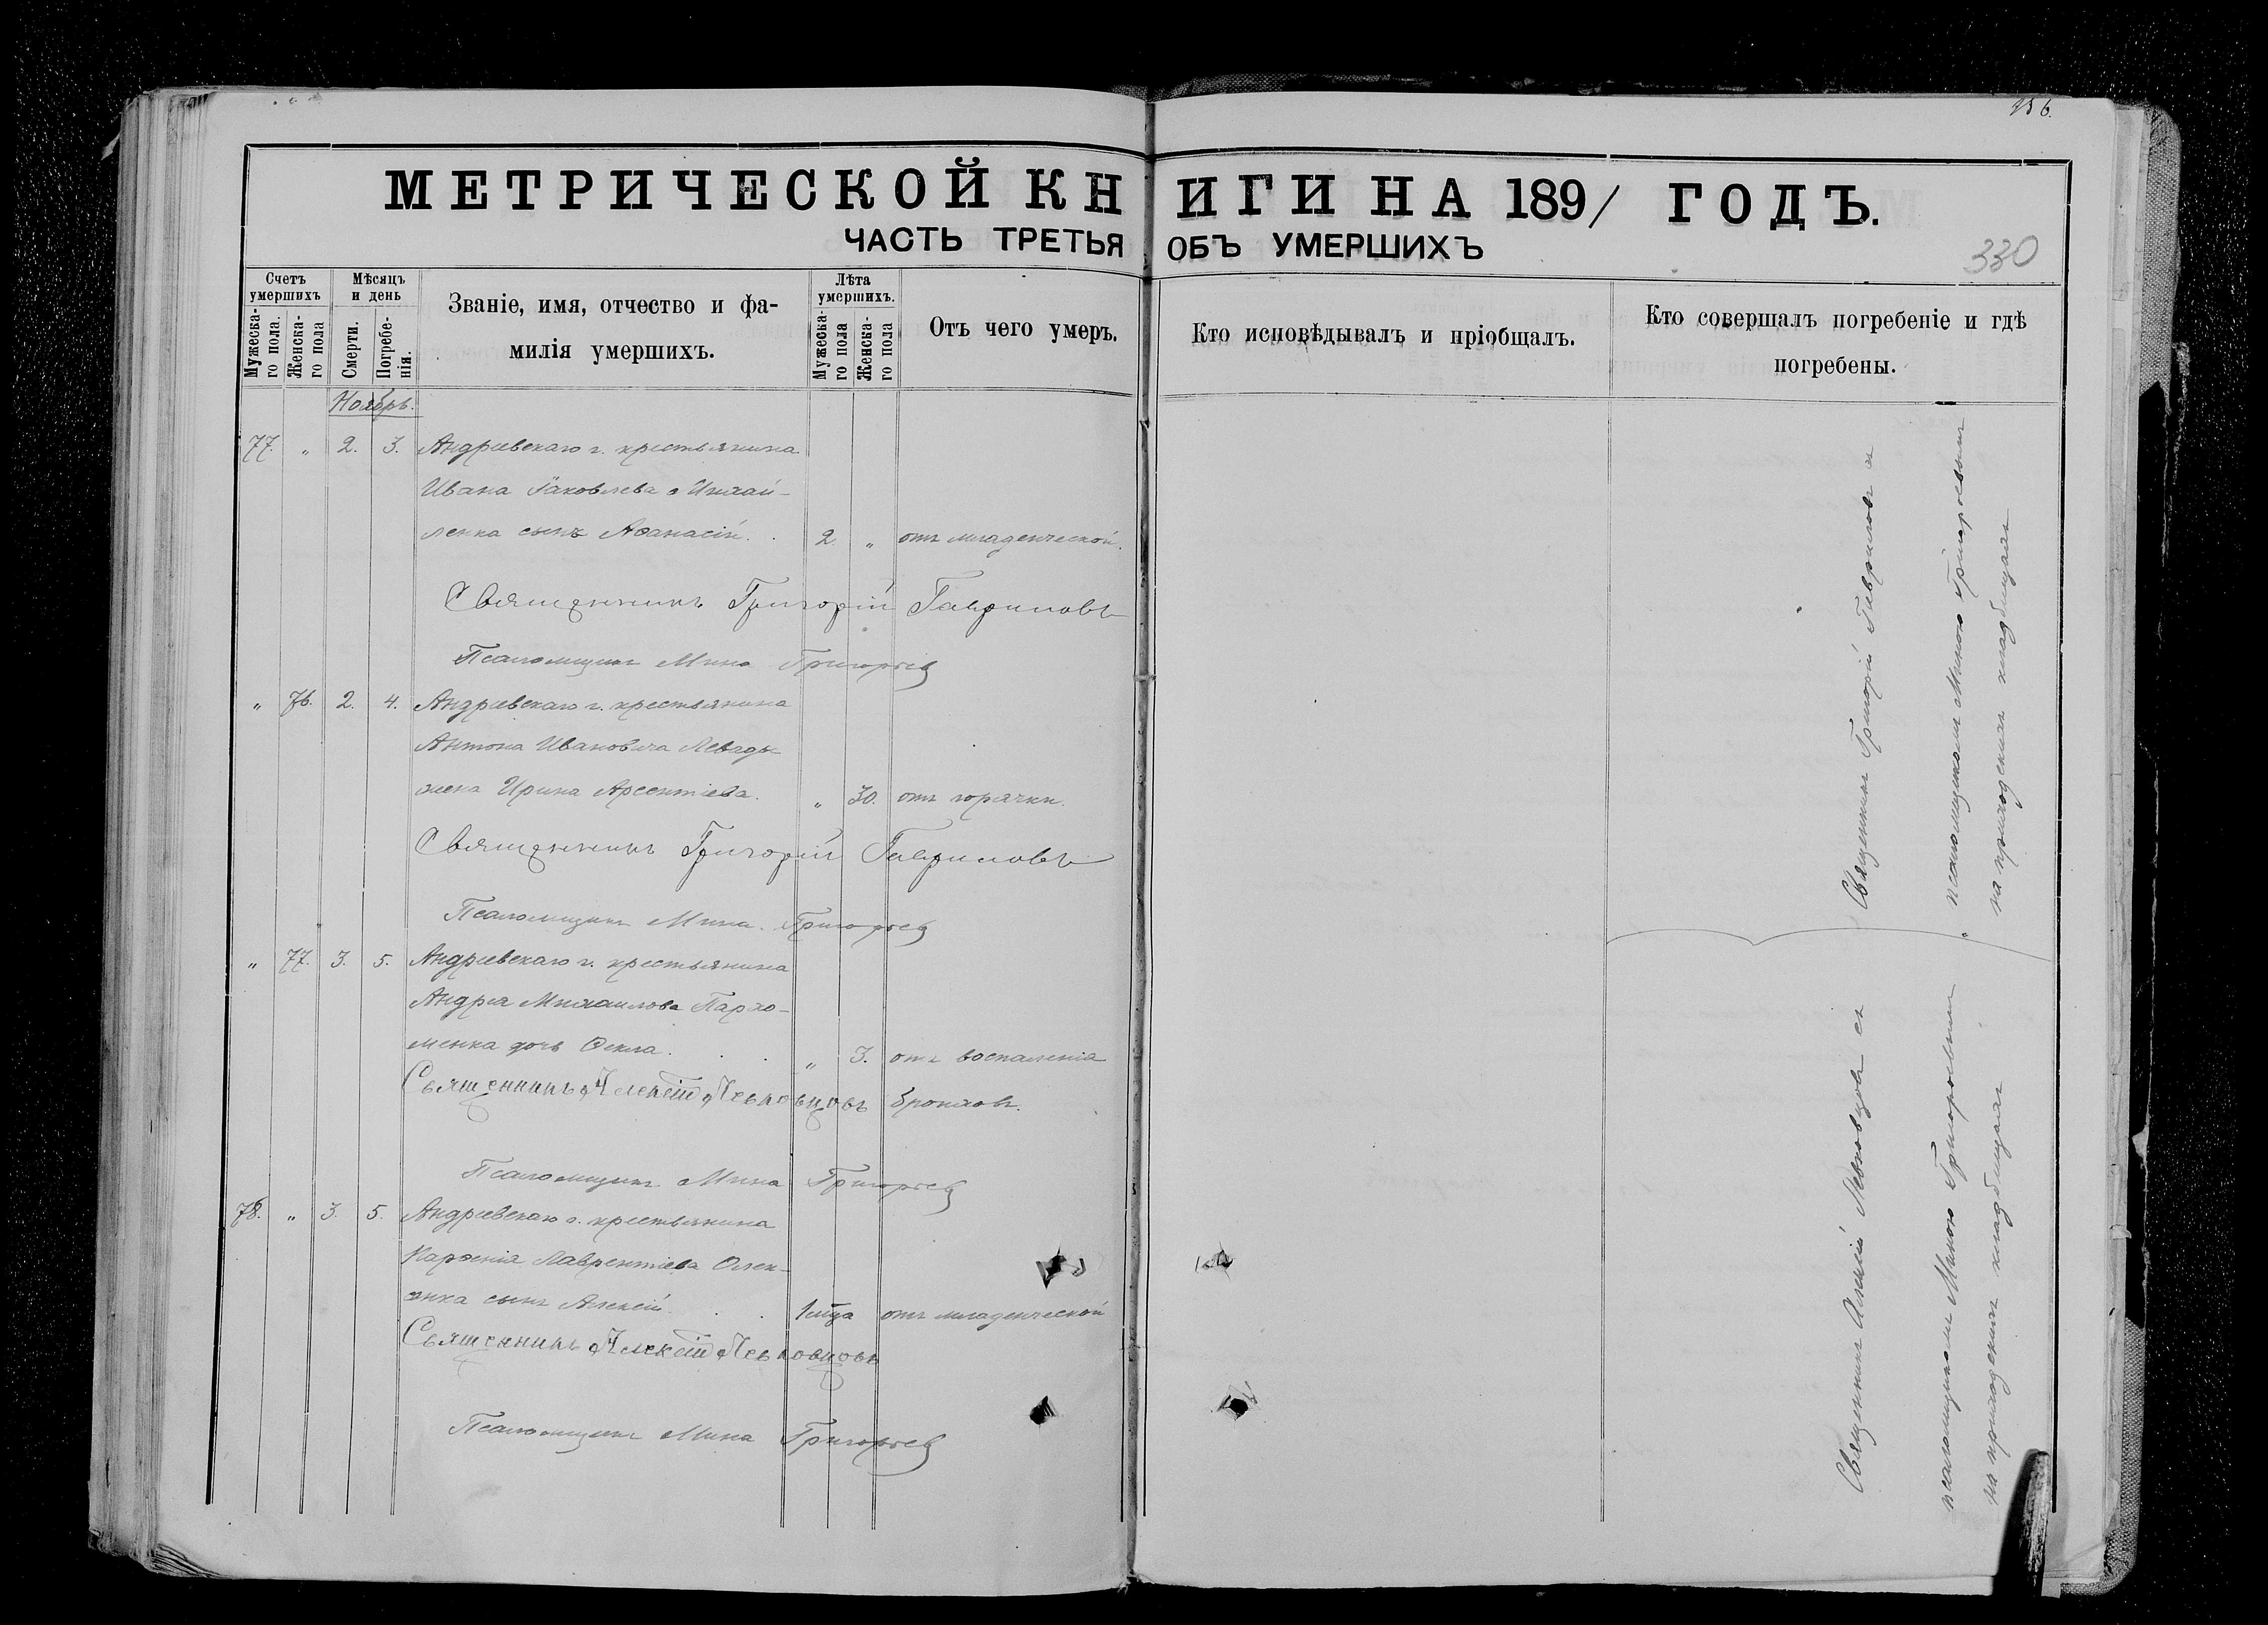 156.
МЕТРИЧЕСКОЙ КНИГИ НА 1891 ГОДЪ.
ЧАСТЬ ТРЕТЬЯ ОБЪ УМЕРШИХЪ
330
Счетъ умершихъ
Мужеска-го пола.
Женска-го пола
Мѣсяцъ и день
Смерти.
Погребе-нія.
Званіе, имя, отчество и фа-
милія умершихъ.
Лѣта умершихъ.
Мужеска-го пола
Женска-го пола
Отъ чего умеръ.
Кто исповѣдывалъ и пріобщалъ.
Кто совершалъ погребеніе и гдѣ
погребены.
Ноябрь.
77. " 2. 3. Андріевскаго г. крестьянина
Ивана Іаковлева Михай-
ленка сынъ Аѳанасій. 2. " отъ младенческой.
Священникъ Григорій Гавриловъ
Псаломщикъ Мина Григорьев
" 76. 2. 4. Андріевскаго г. крестьянина
Антона Ивановича
жена Ирина Арсентіева. " 30. отъ горячки.
Священникъ Григорій Гавриловъ
Псаломщикъ Мина Григорьев
" 77. 3. 5. Андріевскаго г. крестьянина
Андрея Михаилова Пархо-
менка дочь Ѳекла. " 3. отъ воспаленія
Священникъ Алексій Левковцовъ бронховъ.
Псаломщикъ Мина Григорьев
78. " 3. 5. Андріевскаго г. крестьянина
Парѳенія Лаврентіева
сынъ Алексій. 1 мца отъ младенческой
Священникъ Алексій Левковцовъ
Псаломщикъ Мина Григорьев
Священникъ Григорій Гавриловъ съ
псаломщикомъ Миною Григорьевымъ
на приходскомъ кладбищѣ
Священникъ Алексій Левковцовъ съ
псаломщикомъ Миною Григорьевымъ
на приходскомъ кладбищѣ